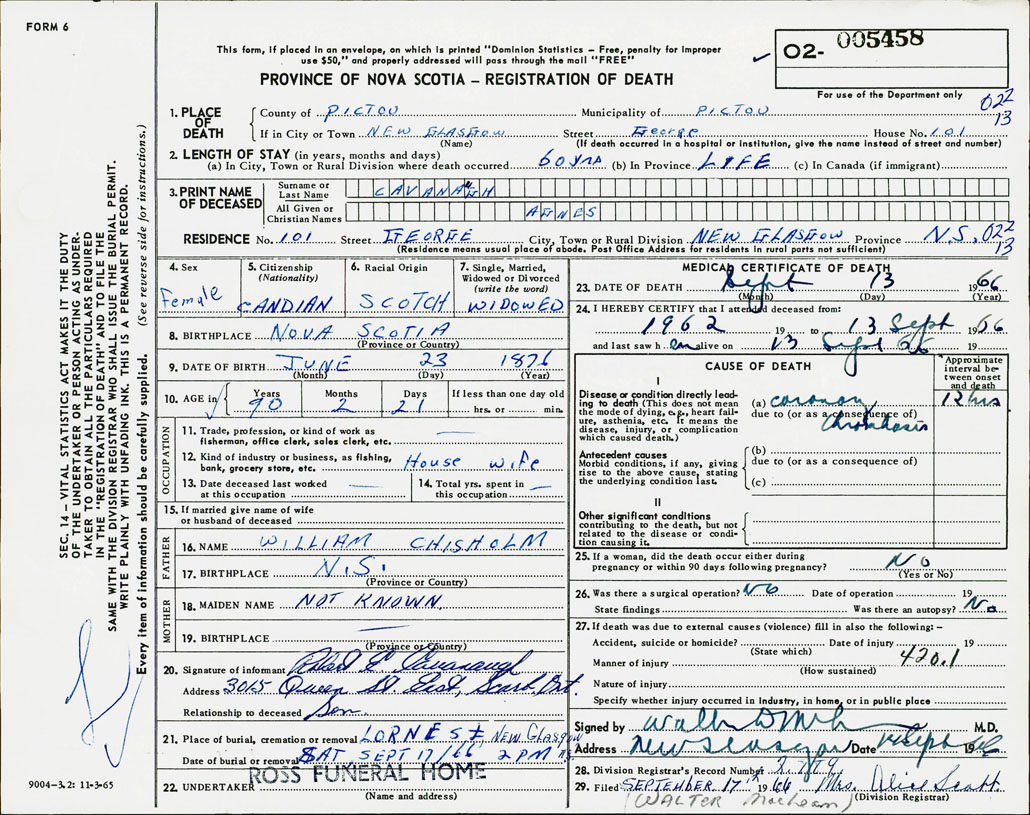 FORM 6
This form, if placed in an envelope, on which is printed "Dominion Statistics – Free, penalty for improper
use $50," and properly addressed will pass through the mail "FREE"
PROVINCE OF NOVA SCOTIA – REGISTRATION OF DEATH
02- 005458
For use of the Department only
022
13
1. PLACE OF DEATH
County of PICTOU Municipality of PICTOU
If in City or Town NEW GLASGOW Street George House No. 101
(Name) (If death occurred in a hospital or institution, give the name instead of street and number)
2. LENGTH OF STAY (in years, months and days)
(a) In City, Town or Rural Division where death occurred 60 yrs (b) In Province LIFE (c) In Canada (if immigrant)
3. PRINT NAME OF DECEASED
Surname or Last Name CAVANAGH
All Given or Christian Names AGNES
RESIDENCE No. 101 Street GEORGE City, Town or Rural Division NEW GLASGOW Province N.S. 022
(Residence means usual place of abode. Post Office Address for residents in rural parts not sufficient) 13
4. Sex Female
5. Citizenship (Nationality) CANDIAN
6. Racial Origin SCOTCH
7. Single, Married, Widowed or Divorced (write the word) WIDOWED
8. BIRTHPLACE NOVA SCOTIA
(Province or Country)
9. DATE OF BIRTH JUNE 23 1876
(Month) (Day) (Year)
10. AGE in Years 90 Months 2 Days 21 If less than one day old hrs. or min.
OCCUPATION
11. Trade, profession, or kind of work as fisherman, office clerk, sales clerk, etc. —
12. Kind of industry or business, as fishing, bank, grocery store, etc. House wife
13. Date deceased last worked at this occupation — 14. Total yrs. spent in this occupation —
15. If married give name of wife or husband of deceased
FATHER
16. NAME WILLIAM CHISHOLM
17. BIRTHPLACE N.S.
(Province or Country)
MOTHER
18. MAIDEN NAME NOT KNOWN.
19. BIRTHPLACE —
(Province or Country)
20. Signature of informant E. Cavanaugh
Address 3015 Queen St East, Scarb. Ont.
Relationship to deceased Son.
21. Place of burial, cremation or removal LORNE ST, NEW GLASGOW N.S.
Date of burial or removal SAT SEPT 17/66, 2 PM
22. UNDERTAKER ROSS FUNERAL HOME
(Name and address)
MEDICAL CERTIFICATE OF DEATH
23. DATE OF DEATH Sept 13 1966
(Month) (Day) (Year)
24. I HEREBY CERTIFY that I attended deceased from:
1962 19 to 13 Sept 1966
and last saw h er alive on 13 Sept 19
CAUSE OF DEATH
Approximate interval between onset and death
I
Disease or condition directly leading to death (This does not mean the mode of dying, e.g., heart failure, asthenia, etc. It means the disease, injury, or complication which caused death.)
(a) coronary 12 hrs
due to (or as a consequence of)
thrombosis
Antecedent causes
Morbid conditions, if any, giving rise to the above cause, stating the underlying condition last.
(b)
due to (or as a consequence of)
(c)
II
Other significant conditions
contributing to the death, but not related to the disease or condition causing it.
25. If a woman, did the death occur either during pregnancy or within 90 days following pregnancy? No
(Yes or No)
26. Was there a surgical operation? No Date of operation 19
State findings Was there an autopsy? No
27. If death was due to external causes (violence) fill in also the following: –
Accident, suicide or homicide? Date of injury 19
(State which)
Manner of injury 420.1
(How sustained)
Nature of injury
Specify whether injury occurred in industry, in home, or in public place
Signed by M.D.
Address New Glasgow Date Sept 1966
28. Division Registrar's Record Number
29. Filed SEPTEMBER 17 1966 Mrs. Alice Scott.
(WALTER MacLean) (Division Registrar)
SEC. 14 – VITAL STATISTICS ACT MAKES IT THE DUTY
OF THE UNDERTAKER OR PERSON ACTING AS UNDER-
TAKER TO OBTAIN ALL THE PARTICULARS REQUIRED
IN THE "REGISTRATION OF DEATH" AND TO FILE THE
SAME WITH THE DIVISION REGISTRAR WHO SHALL ISSUE THE BURIAL PERMIT.
WRITE PLAINLY WITH UNFADING INK. THIS IS A PERMANENT RECORD.
Every item of information should be carefully supplied. (See reverse side for instructions.)
9004-3.2: 11-3-65